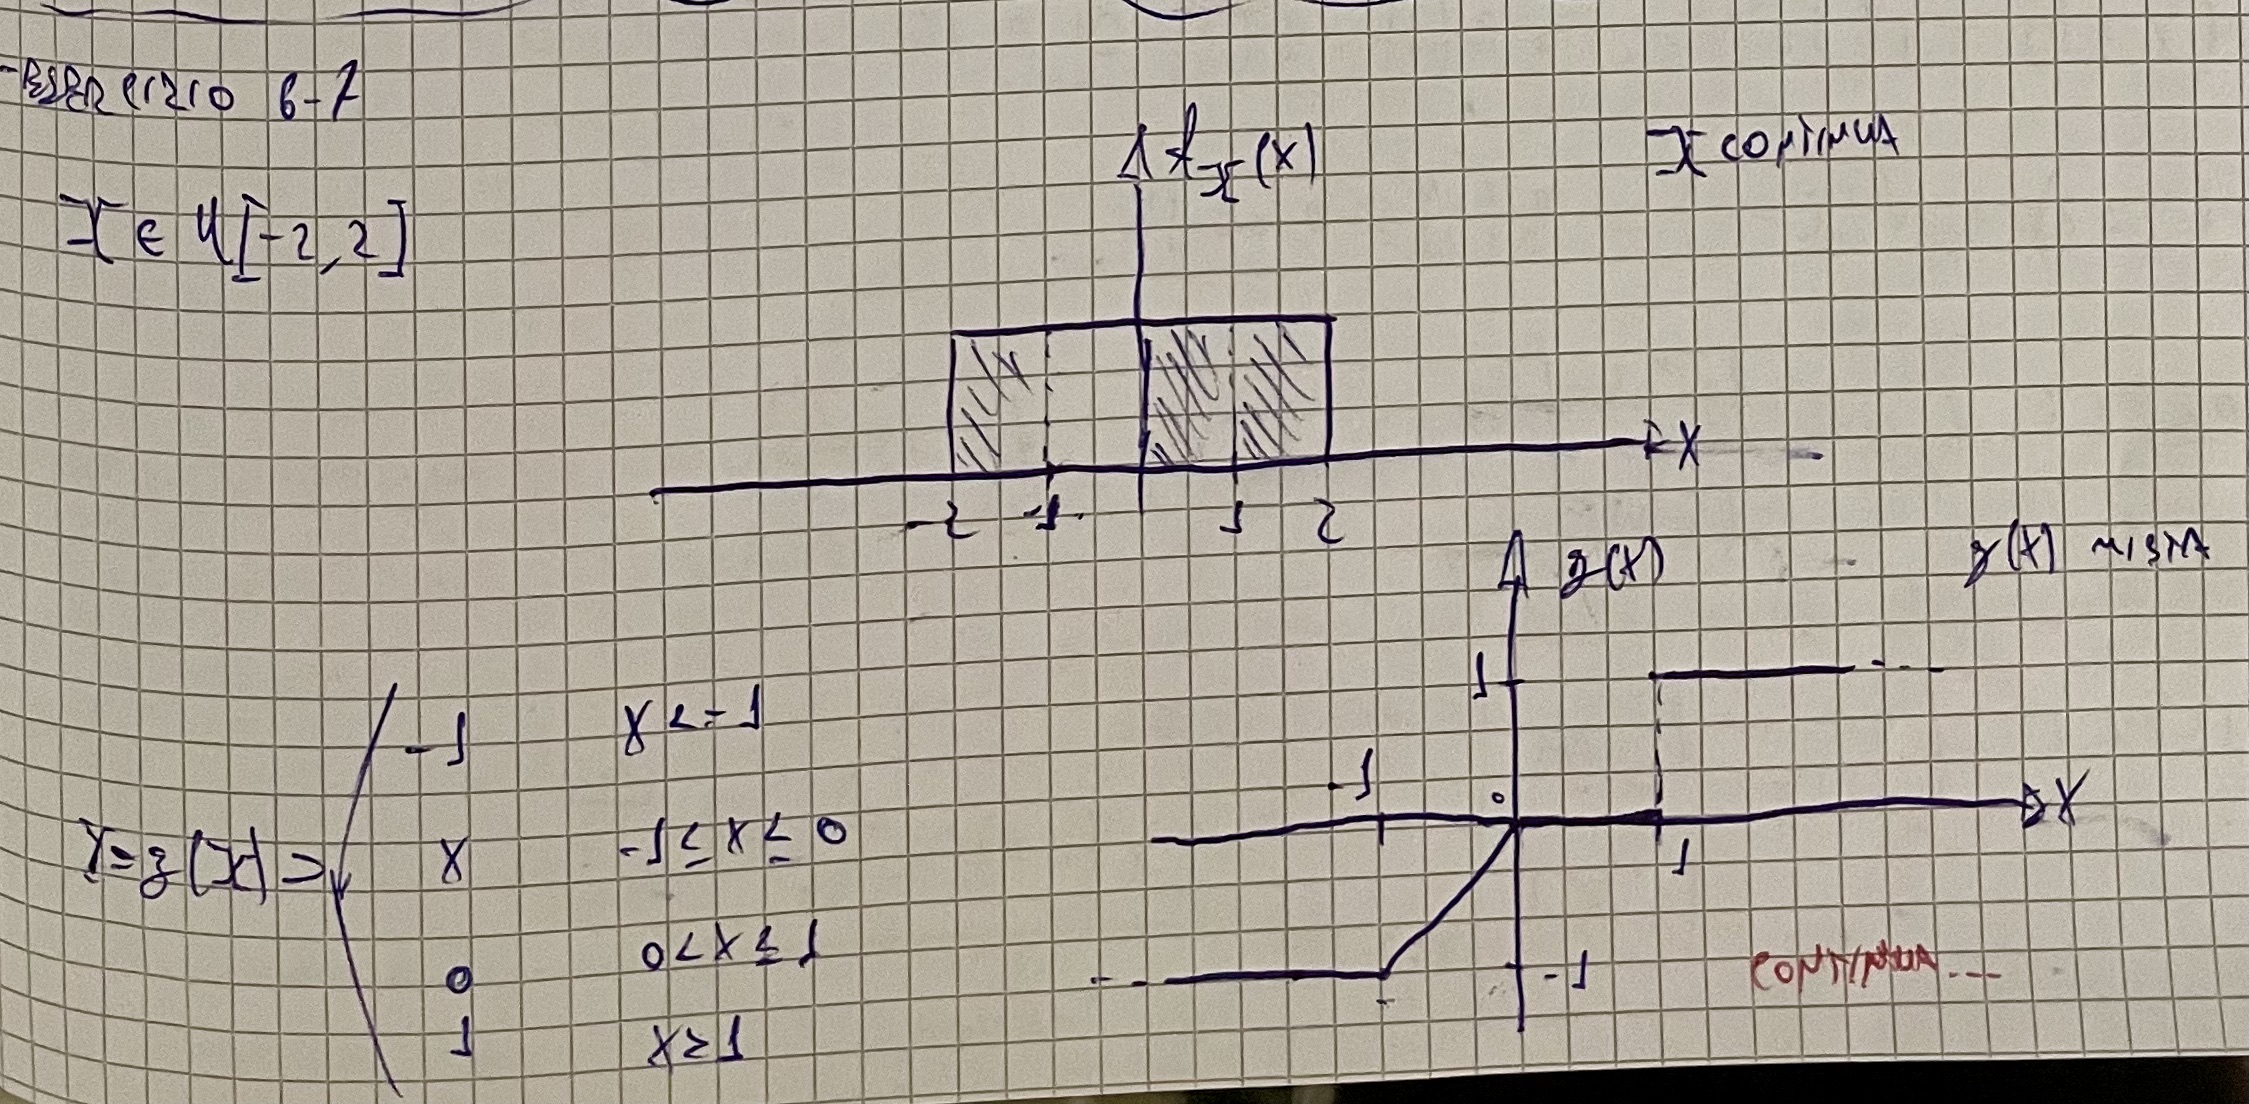 ESERCIZIO 6-7
X ∈ U[-2,2]
f_X(x)
X CONTINUA
-2 -1 1 2 X
g(x)
g(x) MISTA
1
-1 0 1 X
-1
Y=g(X)=
-1 x<-1
x -1≤x≤0
0 0<x≤1
1 x≥1
CONTINUA...